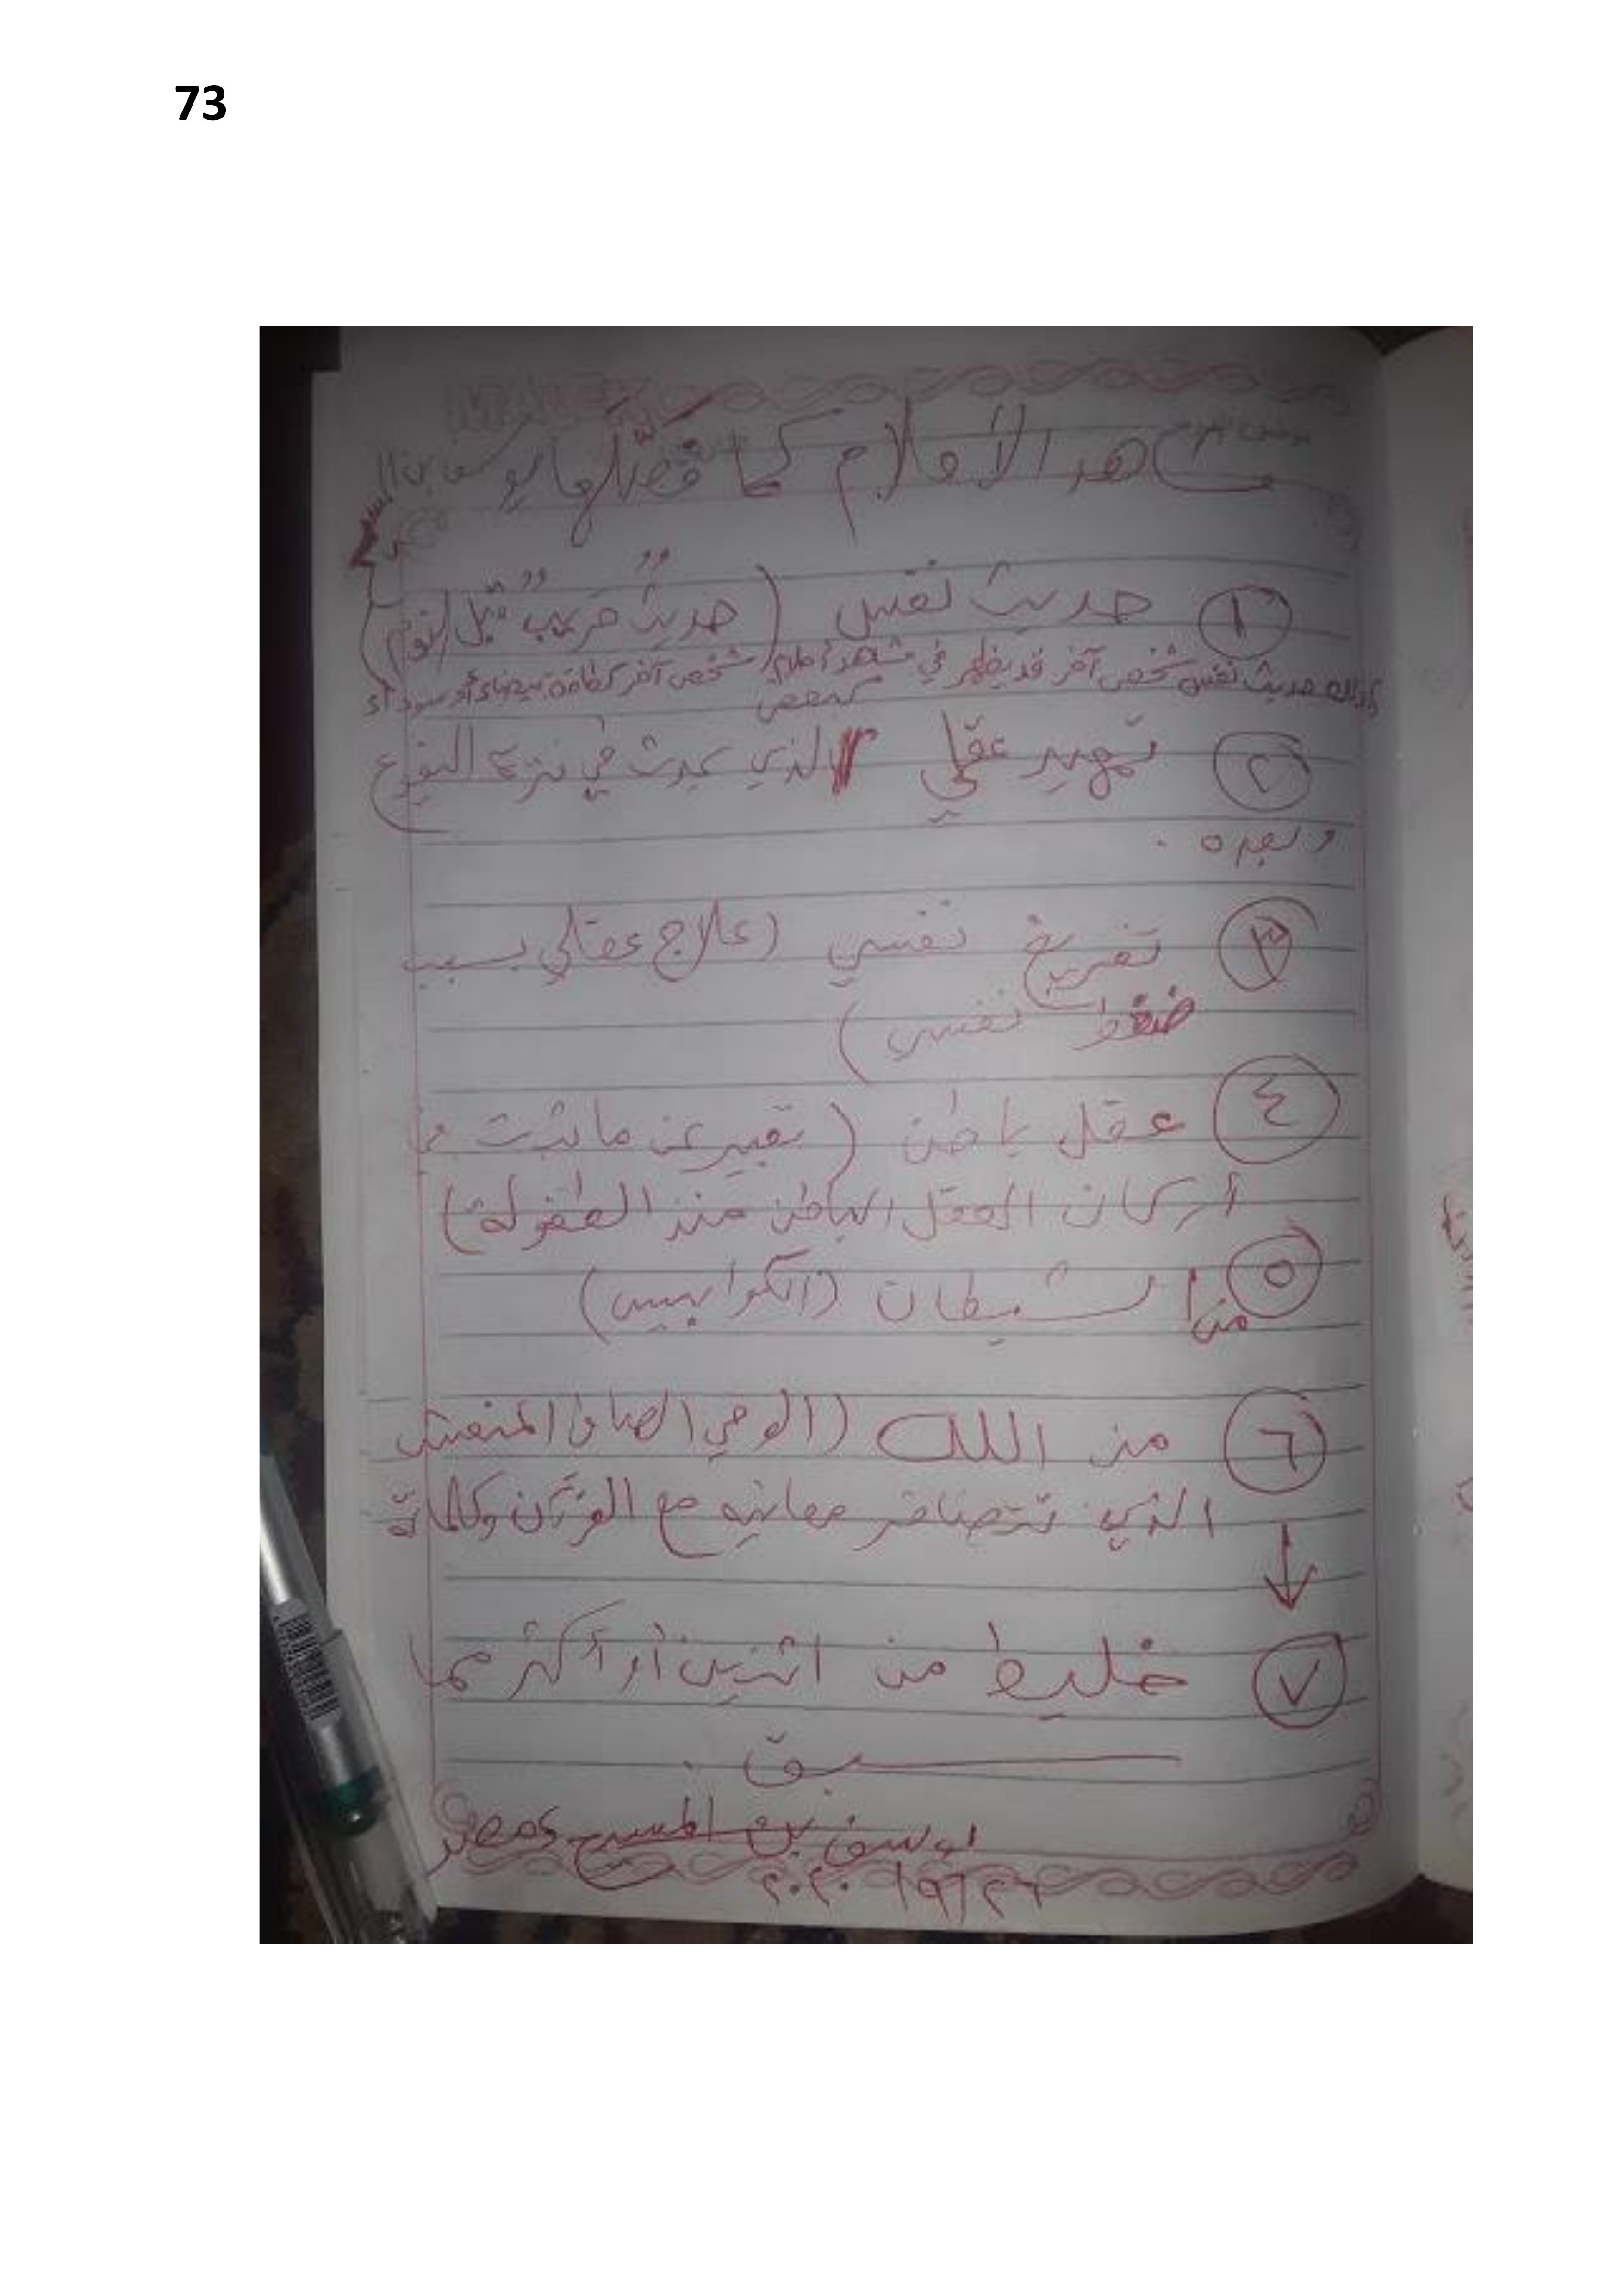 73
مشاهد الأحلام كما فصّلها يوسف بن
١ حديث نفس (حديثٌ قريبٌ قبل النوم)
كذلك حديث نفس شخص آخر قد يظهر في مشهد أحلام شخص آخر كطاقة بيضاء أو سوداء
٢ تمهيد عقلي الذي يحدث في النوع
وبعده .
٣ تفريغ نفسي (علاج عقلي بسبب
ضغط نفسي)
٤ عقل باطن (تعبير عن ما ثبت في
أركان العقل الباطن منذ الطفولة)
٥ من الشيطان (الكوابيس)
٦ من الله (الوحي الصادق
الذي تتضافر معانيه مع القرآن وكلماته
٧ خليط من اثنين أو أكثر مما
سبق .
يوسف بن المسيح مصر